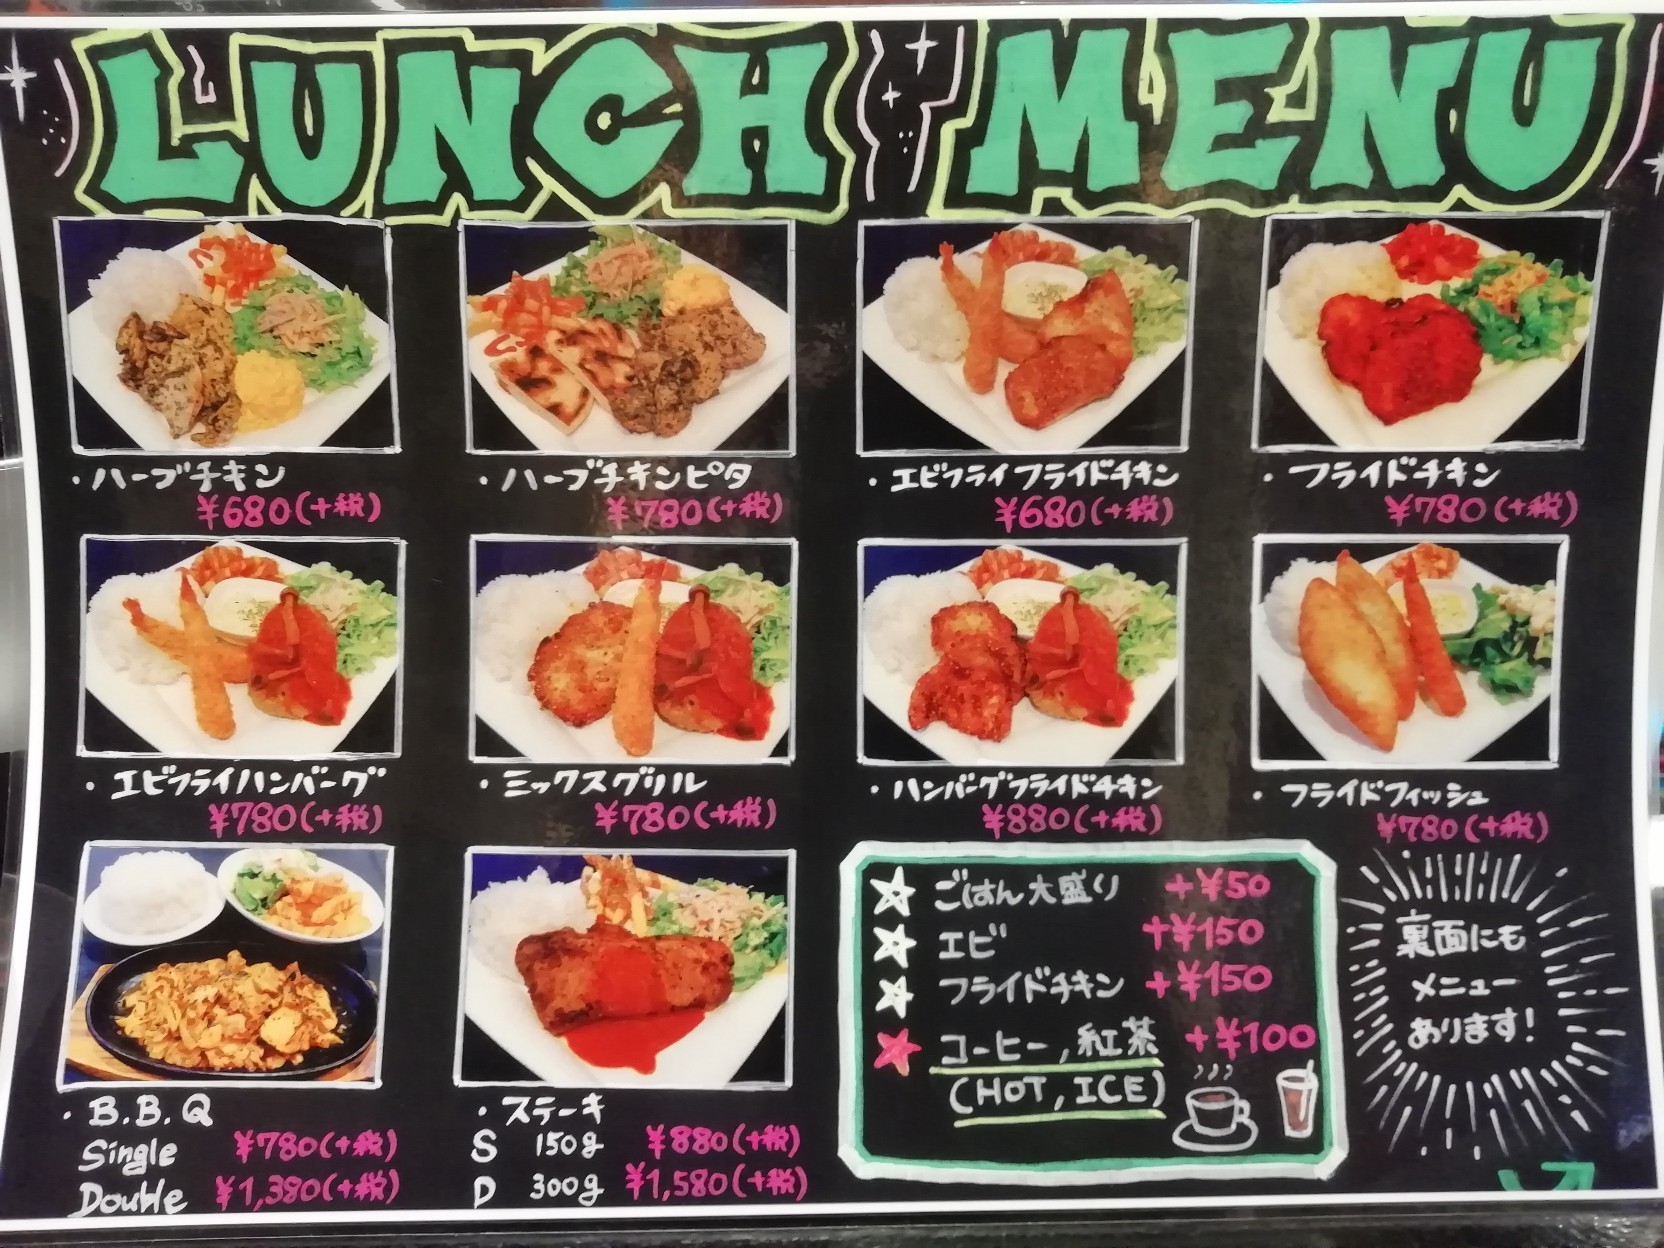 LUNCH MENU
・ハーブチキン
¥680(+税)
・ハーブチキンピタ
¥780(+税)
・エビフライフライドチキン
¥680(+税)
・フライドチキン
¥780(+税)
・エビフライハンバーグ
¥780(+税)
・ミックスグリル
¥780(+税)
・ハンバーグフライドチキン
¥880(+税)
・フライドフィッシュ
¥780(+税)
・B.B.Q
Single ¥780(+税)
Double ¥1,380(+税)
・ステーキ
S 150g ¥880(+税)
D 300g ¥1,580(+税)
☆ ごはん大盛り +¥50
☆ エビ +¥150
☆ フライドチキン +¥150
★ コーヒー,紅茶 +¥100
(HOT,ICE)
裏面にも
メニュー
あります!